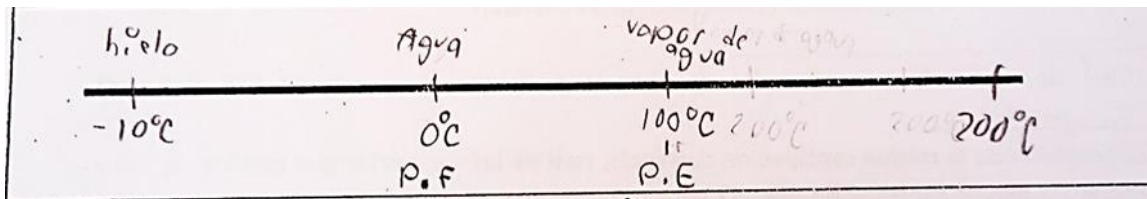 hielo Agua vapor de
agua
-10°C 0°C 100°C 200°C 200°C
P.f P.E